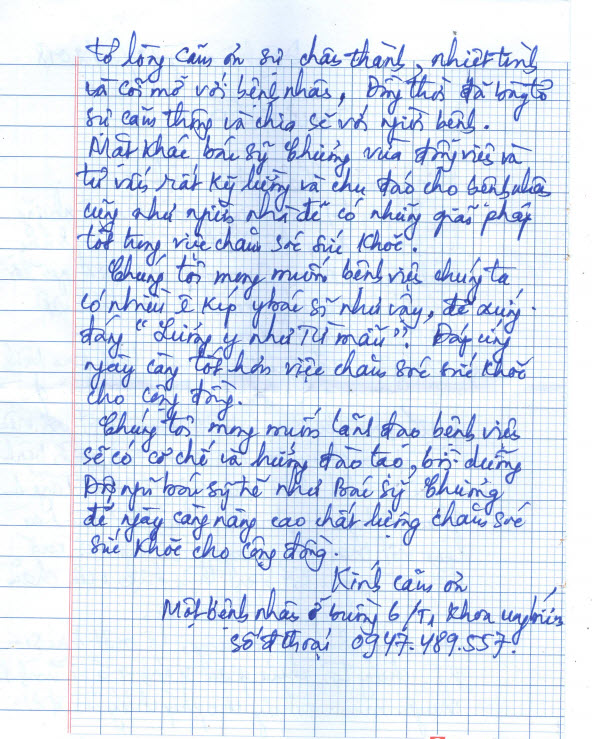 tỏ lòng cảm ơn sự chân thành, nhiệt tình
và cởi mở với bệnh nhân, Đồng thời đã bày tỏ
sự cảm thông và chia sẽ với người bệnh.
Mặt khác bác sỹ Chương vừa động viên và
tư vấn rất kỹ lưỡng và chu đáo cho bệnh nhân
cũng như người nhà để có những giải pháp
tốt trong việc chăm sóc sức khoẻ.
Chúng tôi mong muốn bệnh viện chúng ta
có nhiều ê kíp y bác sĩ như vậy, để xứng
đáng "Lương y như Từ mẫu". Đáp ứng
ngày càng tốt hơn việc chăm sóc sức khoẻ
cho cộng đồng.
Chúng tôi mong muốn lãnh đạo bệnh viện
sẽ có cơ chế và hướng đào tạo, bồi dưỡng
Đội ngũ bác sỹ trẻ như Bác sỹ Chương
để ngày càng nâng cao chất lượng chăm sóc
sức khoẻ cho cộng đồng.
Kính cảm ơn
Một bệnh nhân ở buồng 6/T1 khoa
số đ thoại 0947.489.557.